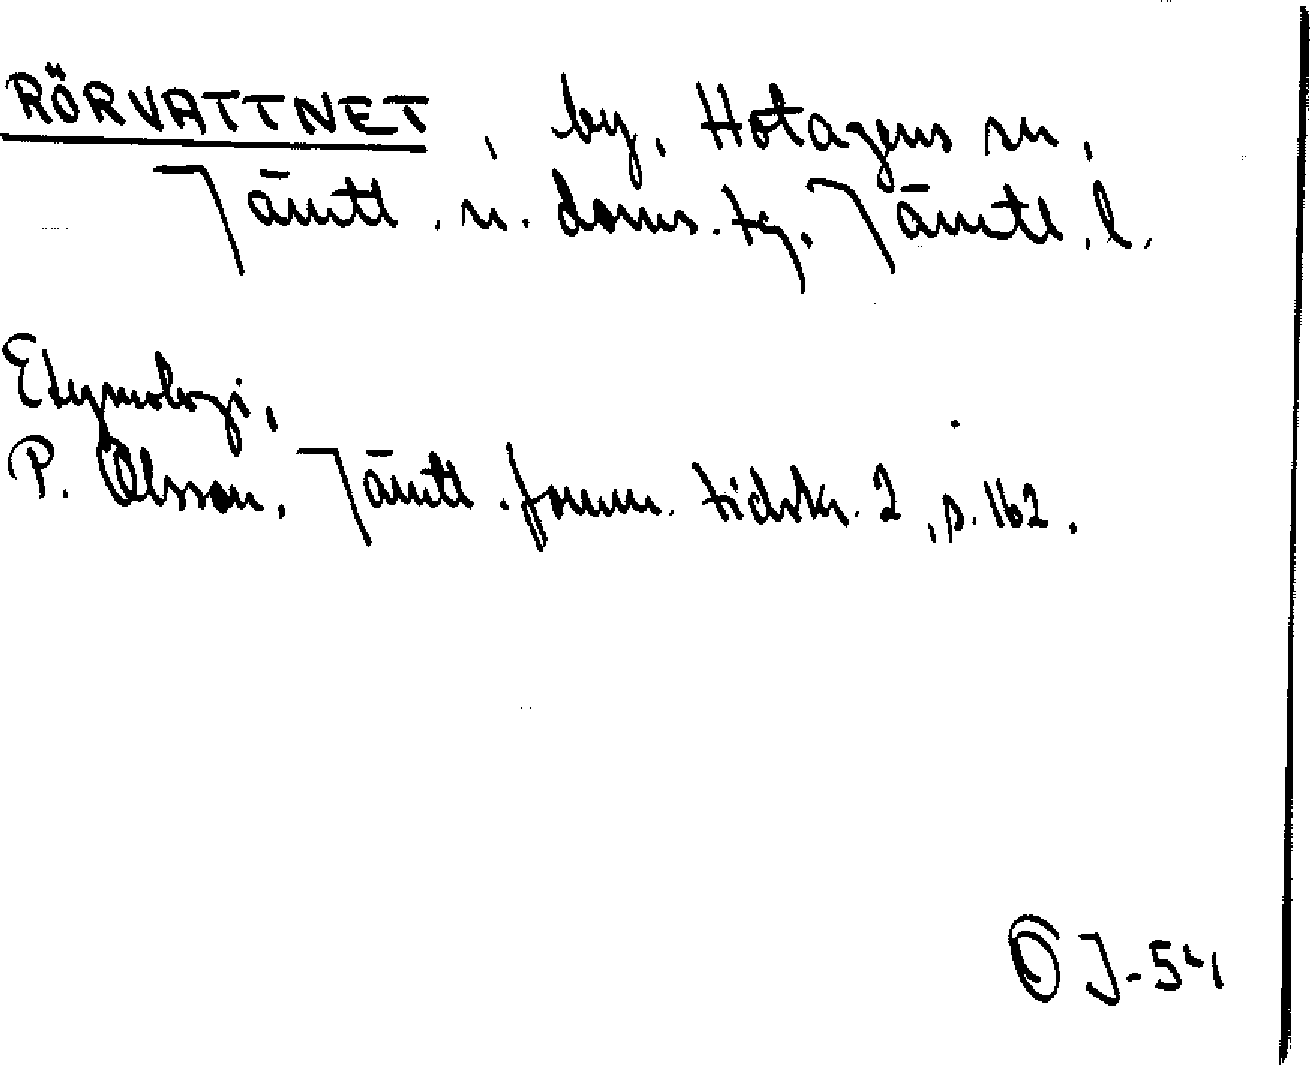 RÖRVATTNET, by, Hotagens sn,
Jämtl. n. doms. tg, Jämtl. l.
Etymologi,
P. Olsson, Jämtl. fornm. tidskr. 2, s. 162.
OJ-54